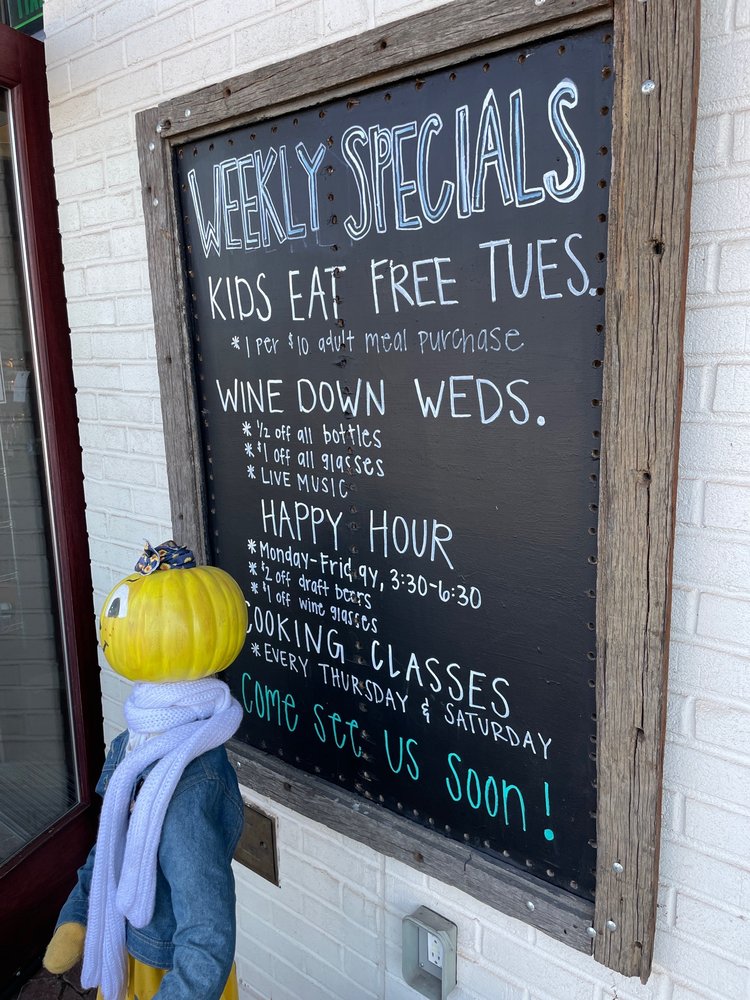 WEEKLY SPECIALS
KIDS EAT FREE TUES.
* 1 per $10 adult meal purchase
WINE DOWN WEDS.
* 1/2 off all bottles
* $1 off all glasses
* LIVE MUSIC
HAPPY HOUR
* Monday-Friday, 3:30-6:30
* $2 off draft beers
* $1 off wine glasses
COOKING CLASSES
* EVERY THURSDAY & SATURDAY
Come see us soon!